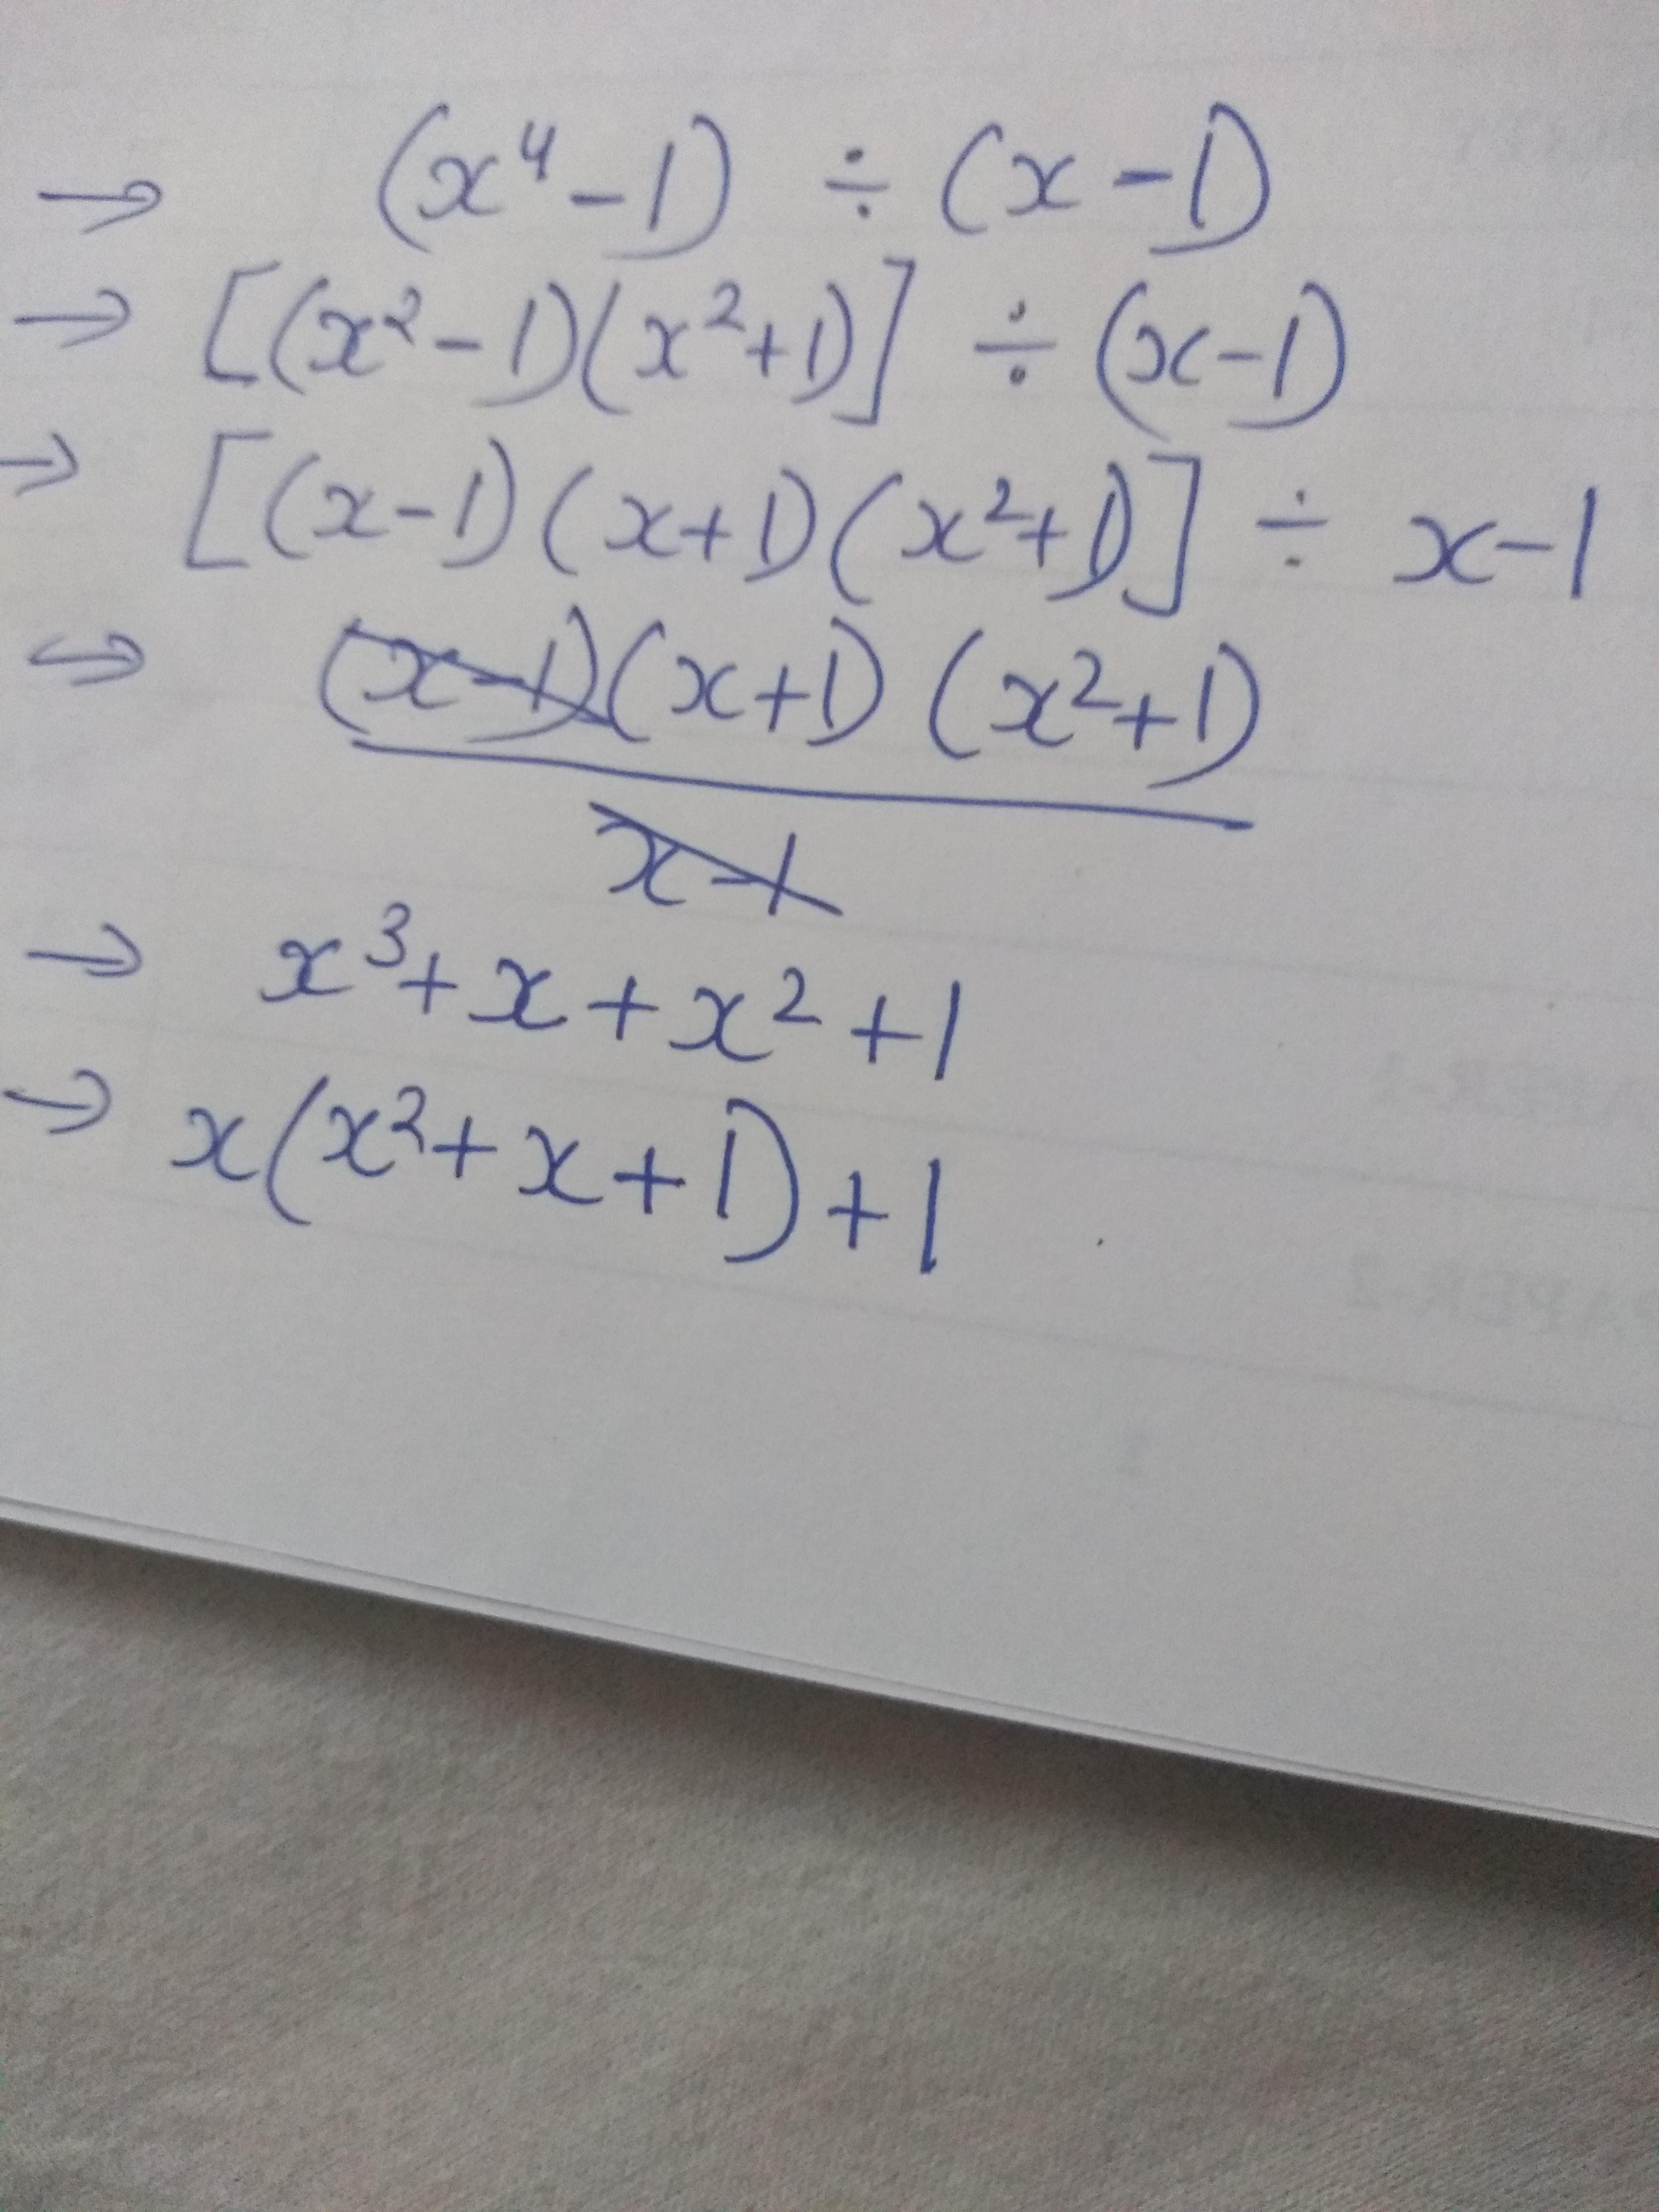 → (x⁴-1) ÷ (x-1)
→ [(x²-1)(x²+1)] ÷ (x-1)
→ [(x-1)(x+1)(x²+1)] ÷ x-1
→ (x-1)(x+1)(x²+1)
x-1
→ x³+x+x²+1
→ x(x²+x+1)+1